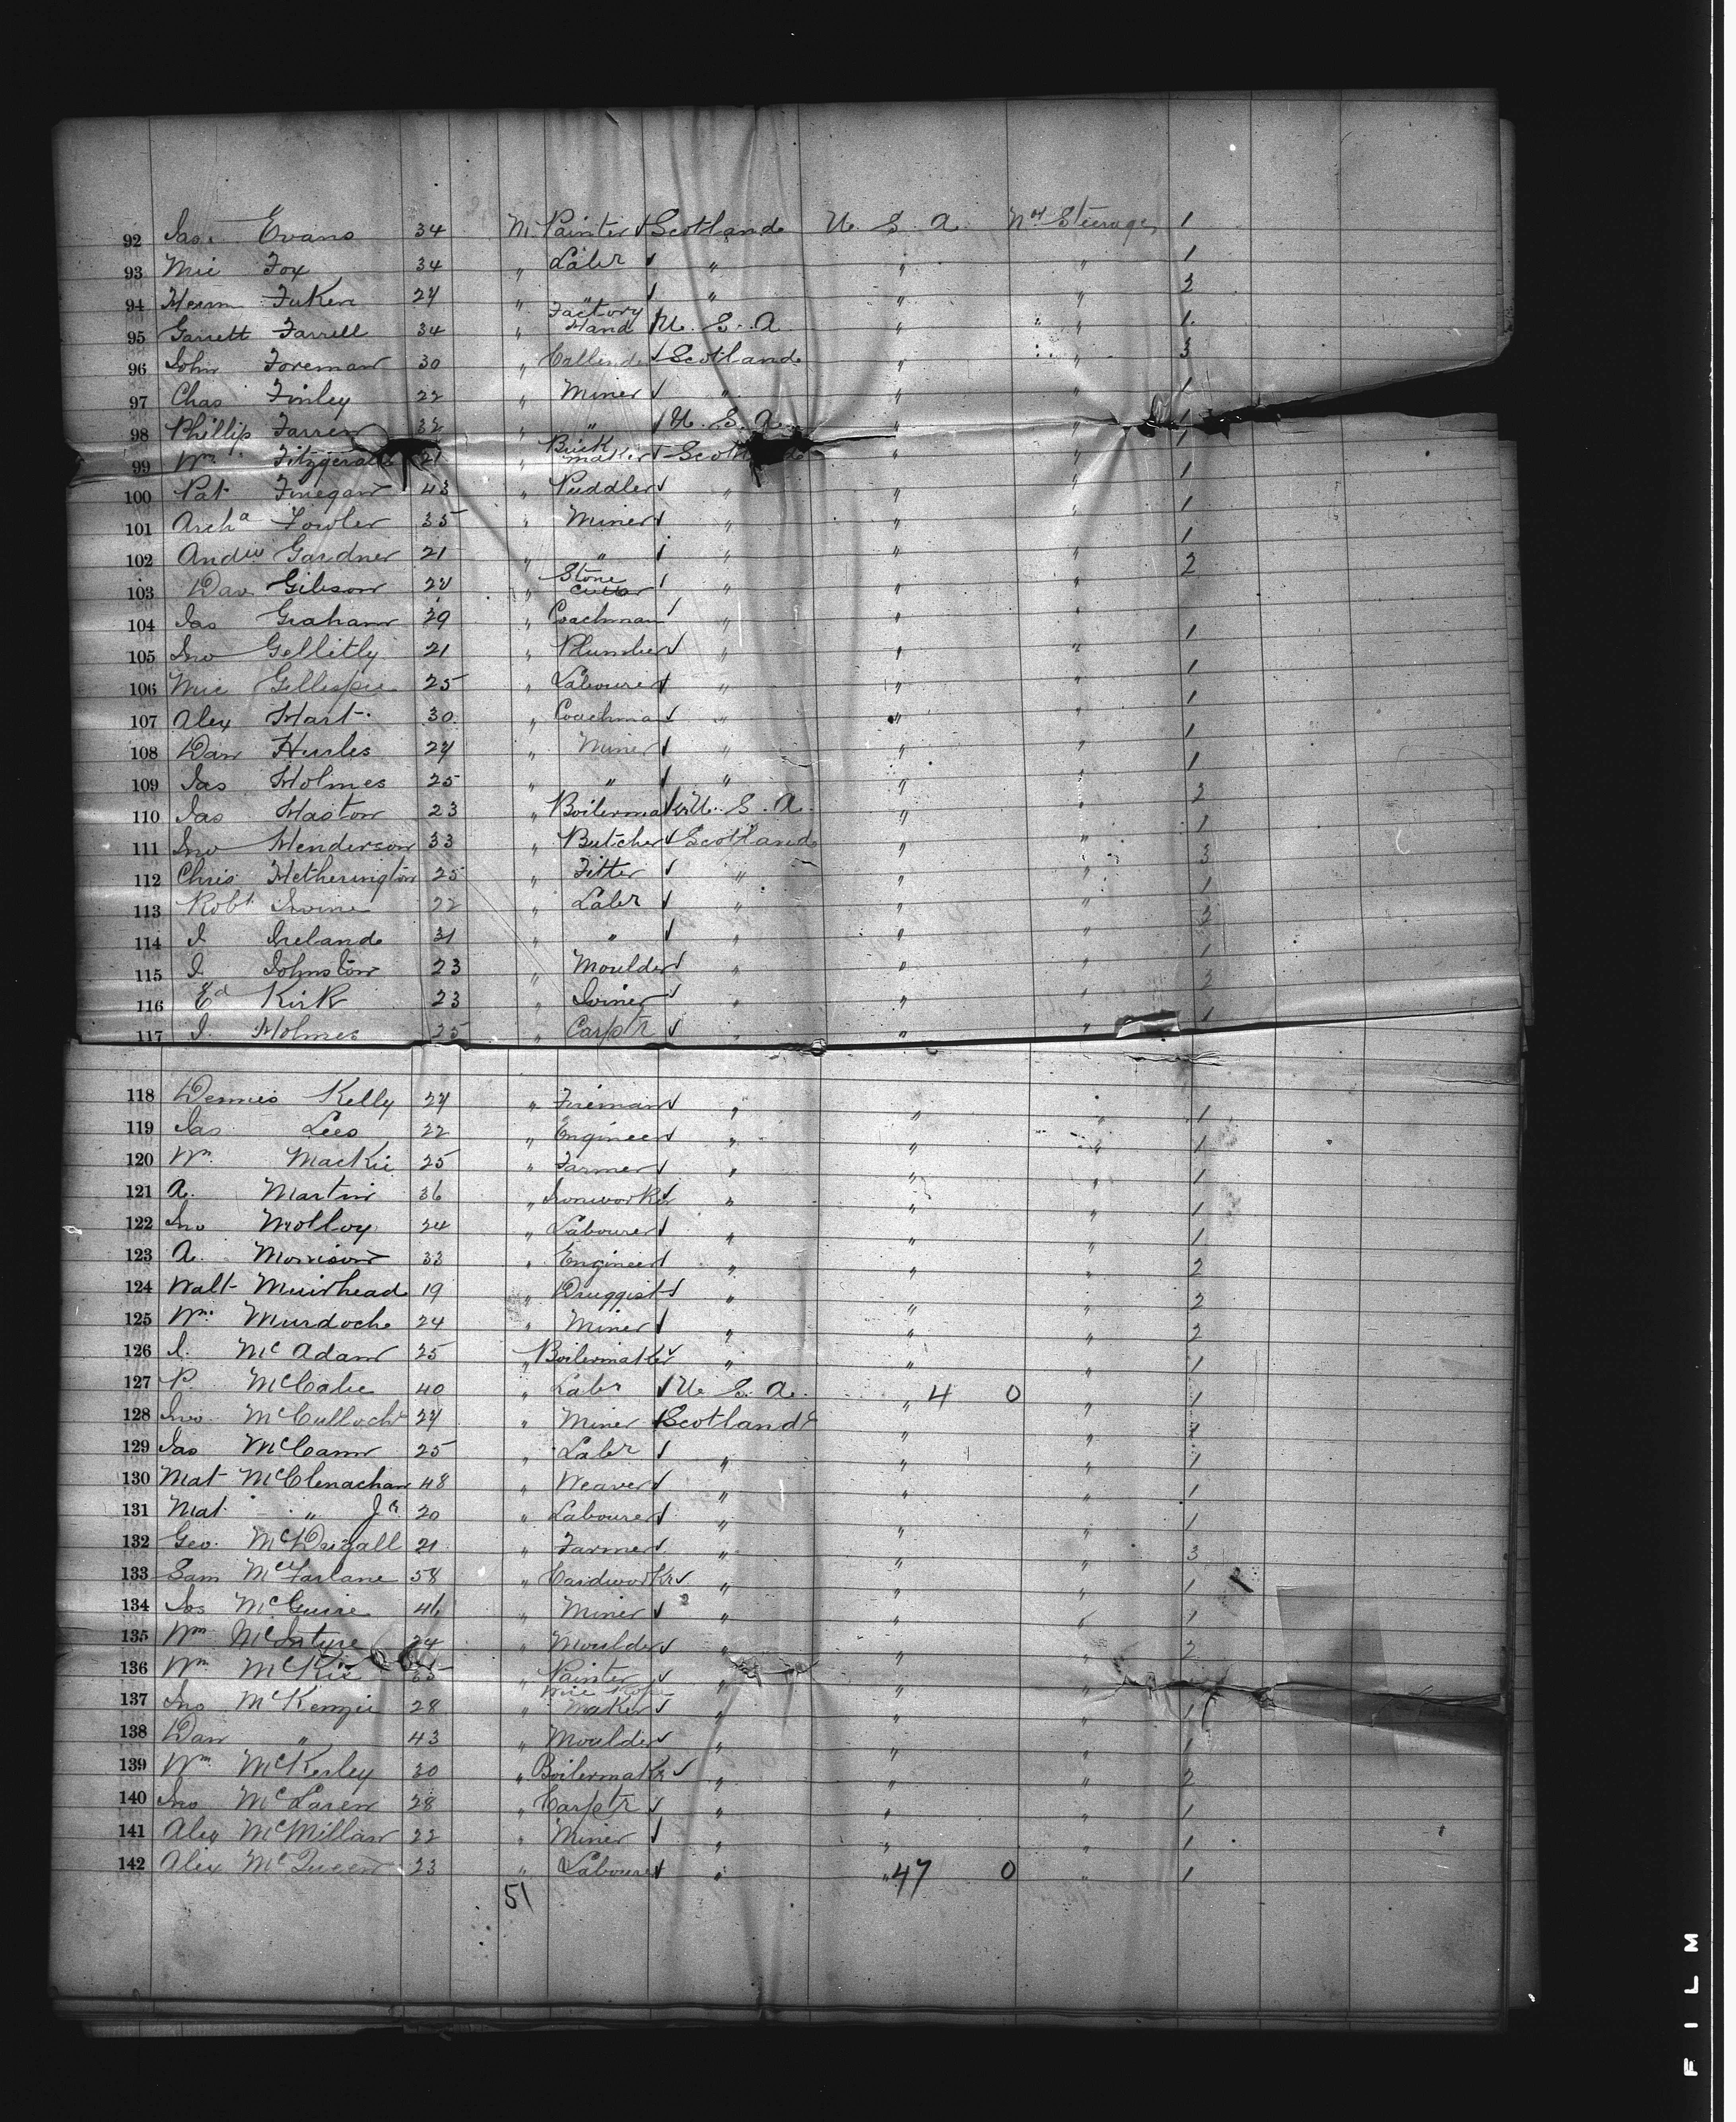 92 Jas. Evans 34 M. Painter Scotland U. S. A. Nº4 Steerage 1
93 Mic Fox 34 " Labr " " " 1
94 Herm Fuken 24 " " " " " 3
95 Garrett Farrell 34 " Factory Hand U. S. A. " " 1
96 John Foreman 30 " Scotland " " 3
97 Chas Finley 22 " Miner " " " 1
98 Phillip Farren 32 " " U. S. A. " " 1
99 Wm. Fitzgerald 21 " Brick maker Scotland " " 1
100 Pat Finegan 43 " Puddler " " " 1
101 Archd Fowler 35 " Miner " " " 1
102 Andw. Gardner 21 " " " " " 1
103 Dav Gibson 24 " Stone Cutter " " " 2
104 Jas Graham 39 " Coachman " "
105 Jno Gellitly 21 " Plumber " " " 1
106 Mic Gillespie 25 " Labourer " " " 1
107 Alex Hart. 30 " Coachman " " 1
108 Dan Hurles 24 " Miner " " " 1
109 Jas Holmes 25 " " " " " 1
110 Jas Haston 23 " Boilermaker U. S. A. " " 2
111 Jno Henderson 33 " Butcher Scotland " " 1
112 Chris Hetherington 25 " Fitter " " " 3
113 Robt Irvine 22 " Labr " " " 1
114 J Ireland 31 " " " " " 2
115 J. Johnston 23 " Moulder " " " 1
116 Ed Kirk 23 " Joiner " " " 2
117 J. Holmes 25 " Carptr " " " 1
118 Dennis Kelly 24 " Fireman " " " 1
119 Jas Lees 22 " Engineer " " " 1
120 Wm. Mackie 25 " Farmer " " " 1
121 A. Martin 36 " Ironworker " " " 1
122 Jno Molloy 24 " Labourer " " " 1
123 A. Morrison 33 " Engineer " " " 2
124 Walt Muirhead 19 " Druggist " " " 2
125 Wm. Murdoch 24 " Miner " " " 2
126 J. McAdam 25 " Boilermaker " " " 1
127 P. McCabe 40 " Labr U. S. A. " 4 0 " 1
128 Jno. McCulloch 24 " Miner Scotland " " 1
129 Jas McCann 25 " Labr " " " 1
130 Mat McClenachan 48 " Weaver " " " 1
131 Mat " Jr 20 " Labourer " " " 1
132 Geo. McDugall 21 " Farmer " " " 3
133 Sam McFarlane 58 " Cardworkr " " " 1
134 Jos McGuire 46 " Miner " " " 1
135 Wm McIntyre 24 " Moulder " " " 2
136 Wm McKie 35 " Painter " " "
137 Jno McKenzie 28 " Wire Rope Maker " " " 1
138 Dan " 43 " Moulder " " " 1
139 Wm McKerley 30 " Boilermakr " " " 2
140 Jno McLaren 28 " Carptr " " " 1
141 Alex McMillan 22 " Miner " " " 1
142 Alex McQueen 23 " Labourer " " 47 0 " 1
51
FILM